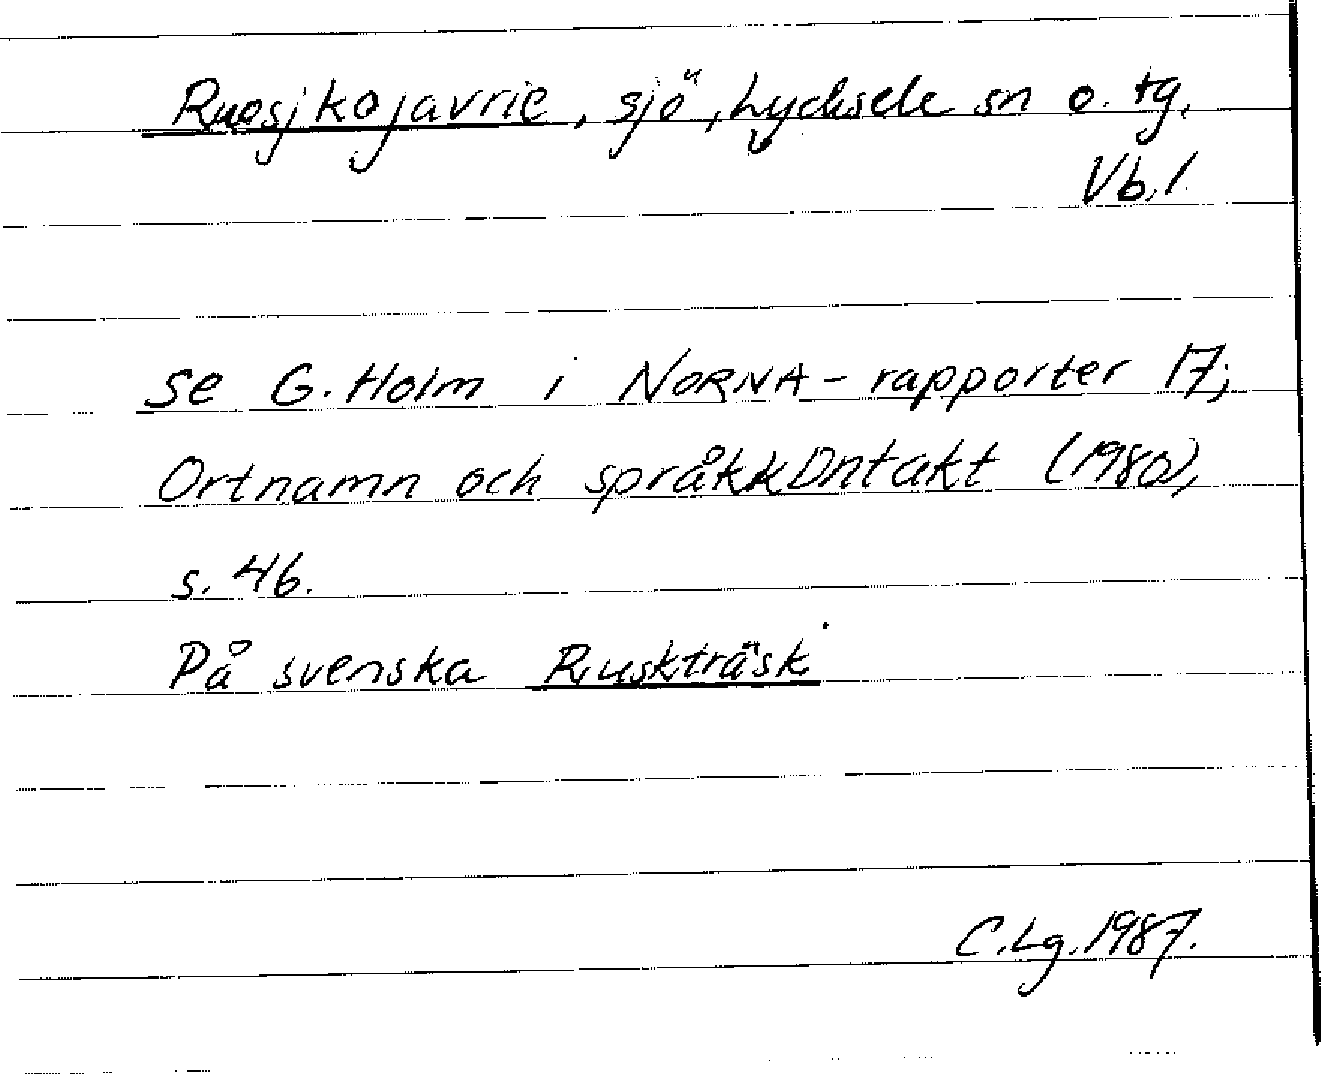 Ruosjkojavrie, sjö, Lycksele sn o. tg.
Vb.l.
Se G. Holm i NORNA-rapporter 17;
Ortnamn och språkkontakt (1980),
s. 46.
På svenska Ruskträsk
C.Lg. 1987.